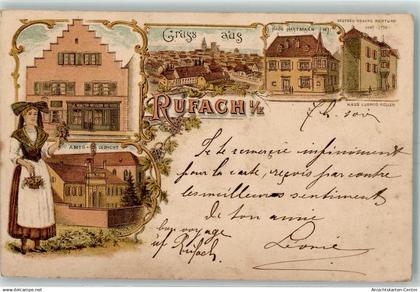 Gruss aus
HAUS HARTMANN
HAUS LUDWIG KELLER
RUFACH i/E
AMTSGERICHT
Je te remercie infiniment
pour la carte, reçois par contre
les meilleurs sentiments
de ton amie
Léonie
bon voyage
Rufach.
www.ansichtskarten-center.de
Ansichtskarten-Center